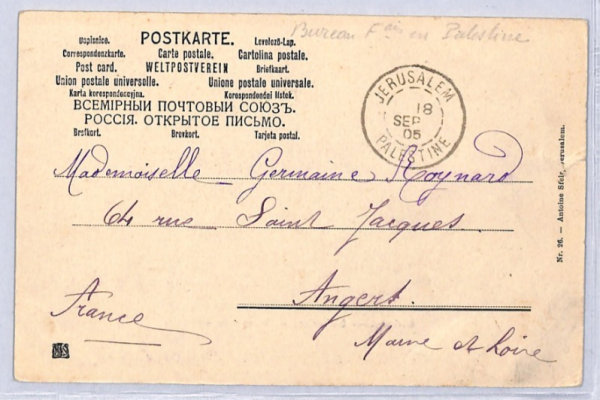 Bureau Fais en Palestine
POSTKARTE.
Dopisnice. Levelező-Lap.
Correspondenzkarte. Carte postale. Cartolina postale.
Post card. WELTPOSTVEREIN Briefkaart.
Union postale universelle. Unione postale universale.
Karta korespondencyjna. Korespondenčni listek.
ВСЕМІРНЫЙ ПОЧТОВЫЙ СОЮЗЪ.
РОССІЯ. ОТКРЫТОЕ ПИСЬМО.
Brefkort. Brevkort. Tarjeta postal.
JERUSALEM
18
SEP
05
PALESTINE
Mademoiselle Germaine Roynard
64 rue Saint Jacques.
Angers.
France
Maine et Loire
Nr. 26. — Antoine Sfeir, Jerusalem.